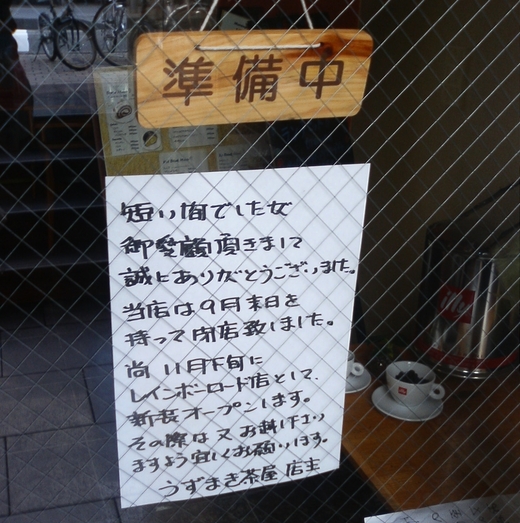 準備中
短い間でしたが
御愛顧頂きまして
誠にありがとうございました。
当店は9月末日を
持って閉店致しました。
尚 11月下旬に
レインボーロード店として、
新装オープンします。
その際は又お越し下さい
ますよう宜しくお願いします。
うずまき茶屋 店主
illy